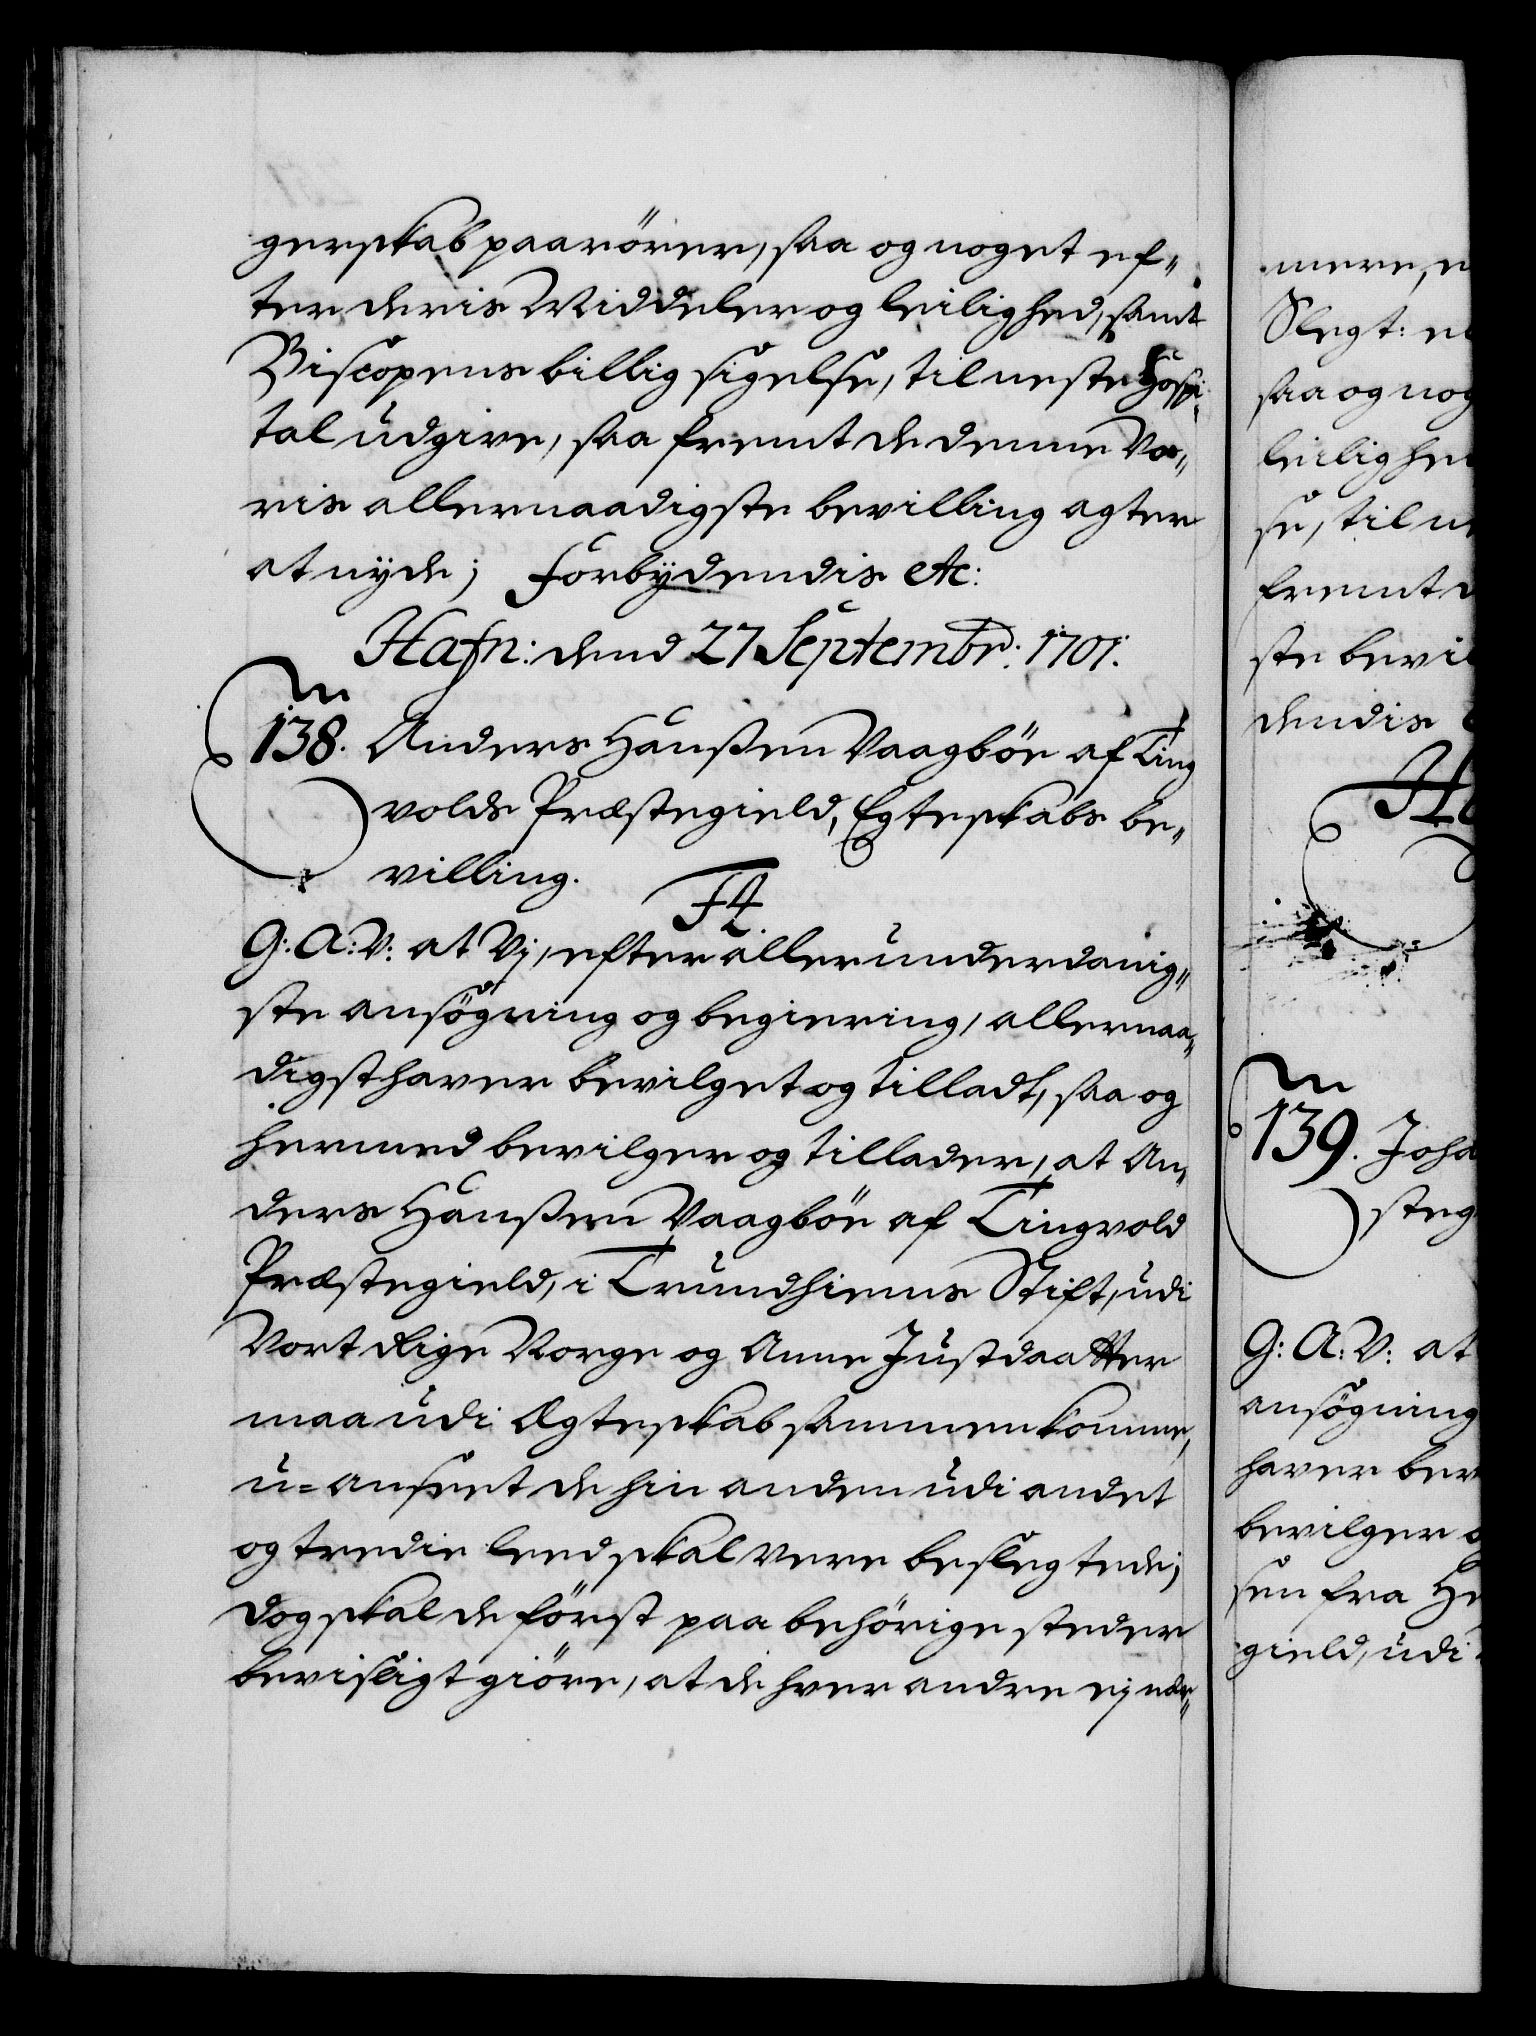 gerskab paarörer, saa og noget ef-
ter deris Middeler og leilighed, samt
Biscopens billig sigelse, til neste Hospi-
tal udgive, saa fremt de denne Vo-
ris allernaadigste bevilling agter
at nyde; Forbydendis etc:
Hafn: dend 27 Septembr: 1701.
138. Anders Hanßen Vaagböe af Ting
volds Præstegield, Egteskabs be-
villing.
F4.
G: A: V: at Vj, efter allerunderdanig-
ste ansögning og begiering, allernaa-
digst haver bevilget og tilladt, saa og
hermed bevilger og tillader, at An-
ders Hanßen Vaagböe af Tingvold
Præstegield, i Trundhiems Stift, udi
Vort Rige Norge og Anne Justdaatter
maa udi Ægteskab sammenkomme,
u=anseet de hin anden udi andet
og tredie leed skal vere beslegtede;
dog skal de först paa behörige steder
bevisligt giöre, at de hver andre ej nær-
mere, e
Slegt: el
saa og nog
leilighed
se, til ne
fremt d
ste bevil
dendis
139. Joha
steg
G: A: V: at
ansögning
haver bev
bevilger o
sen fra He
gield, udi